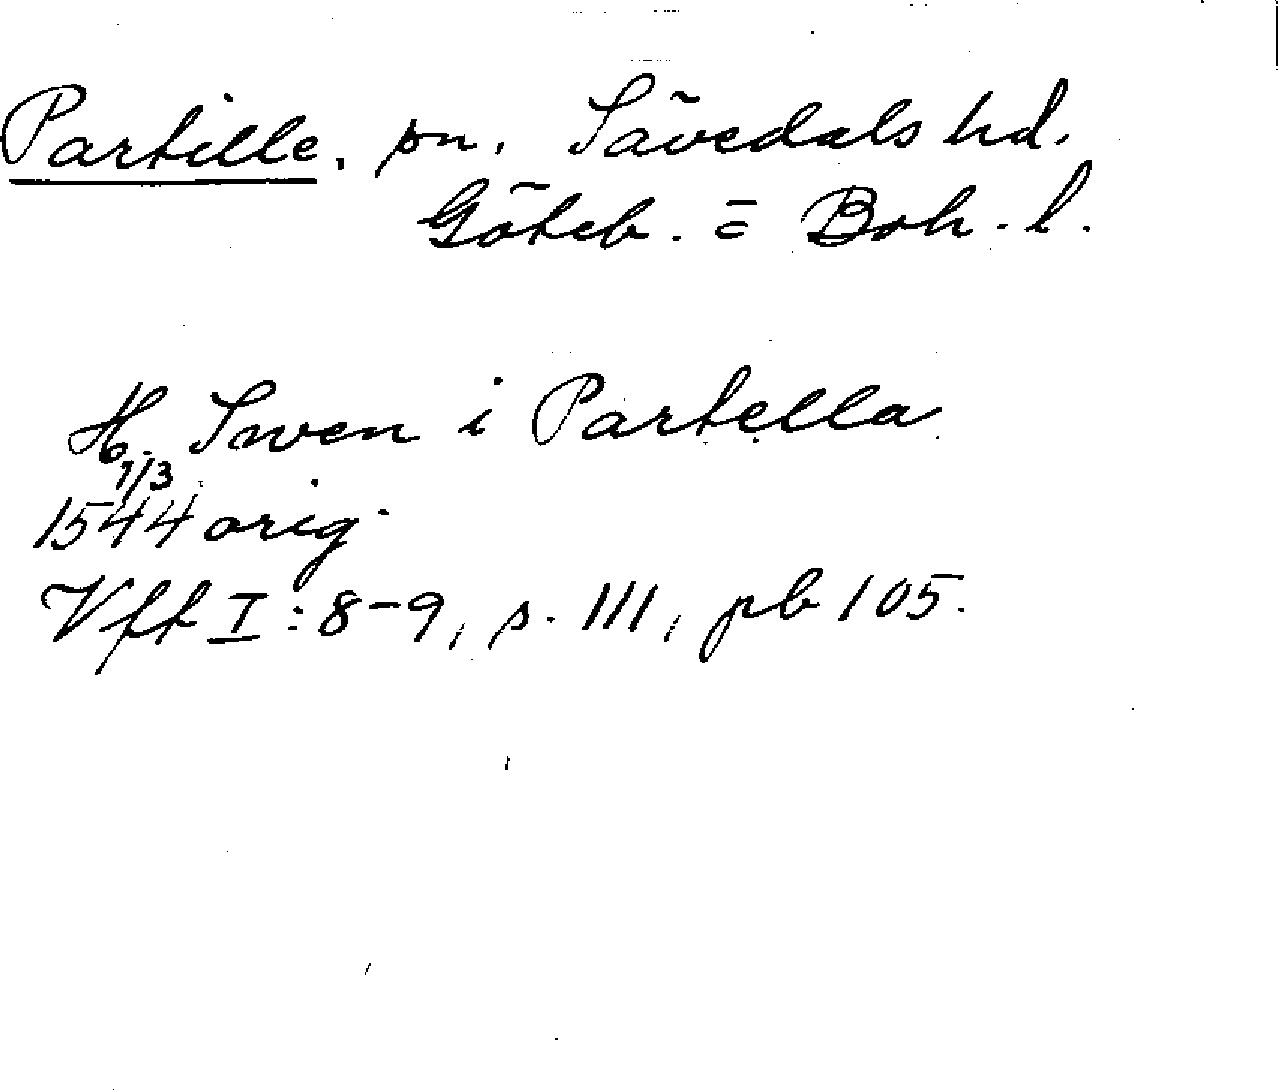 Partille. sn. Sävedals hd.
Göteb. = Boh. l.
H. Swen i Partella
1/3
1544 orig.
Vfft I: 8-9, s. 111, pb 105.